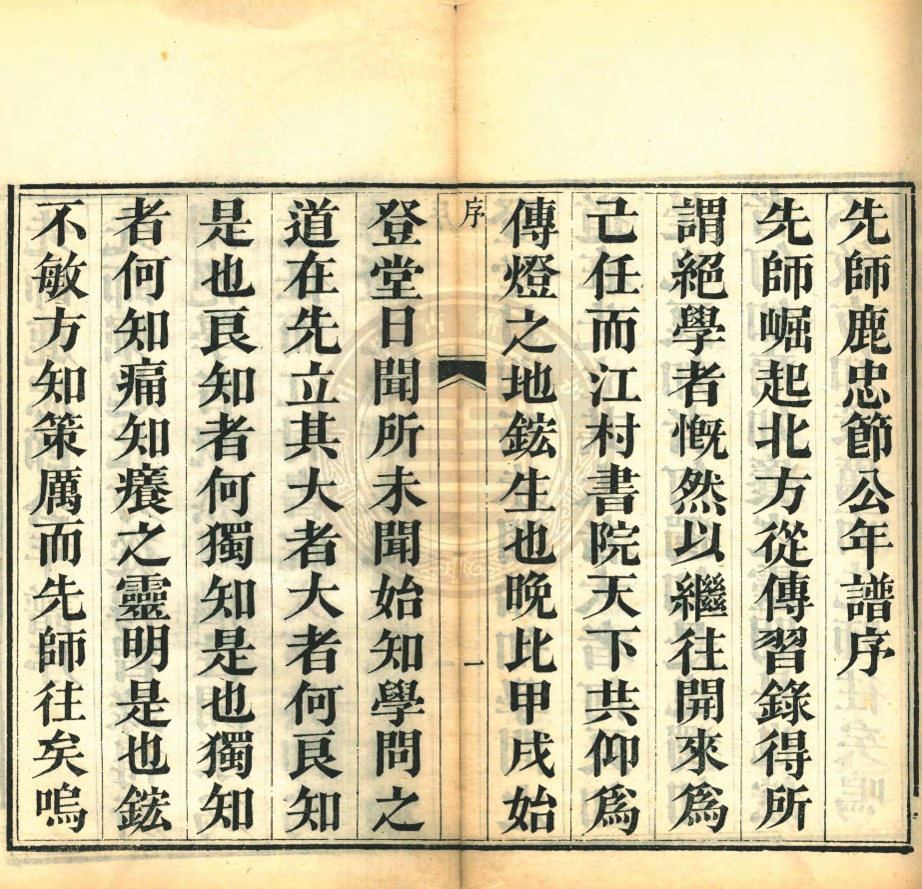 先師鹿忠節公年譜序
先師崛起北方從傳習錄得所
謂絕學者慨然以繼往開來爲
己任而江村書院天下共仰爲
傳燈之地鋐生也晚比甲戌始
序
一
登堂日聞所未聞始知學問之
道在先立其大者大者何良知
是也良知者何獨知是也獨知
者何知痛知癢之靈明是也鋐
不敏方知策厲而先師往矣嗚